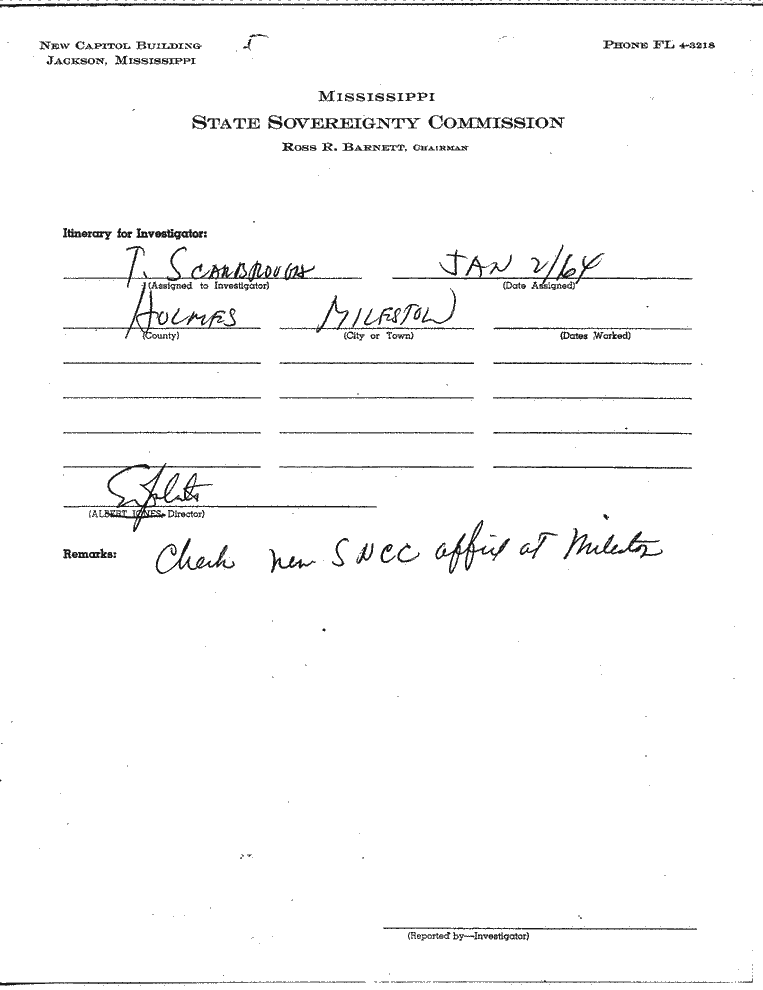 NEW CAPITOL BUILDING
JACKSON, MISSISSIPPI
PHONE FL 4-3218
MISSISSIPPI
STATE SOVEREIGNTY COMMISSION
ROSS R. BARNETT, CHAIRMAN
Itinerary for Investigator:
T. SCARBROUGH JAN 2/64
(Assigned to Investigator) (Date Assigned)
HOLMES MILESTON
(County) (City or Town) (Dates Worked)
(ALBERT JONES, Director)
Remarks: Check new SNCC office at Mileston
(Reported by—Investigator)